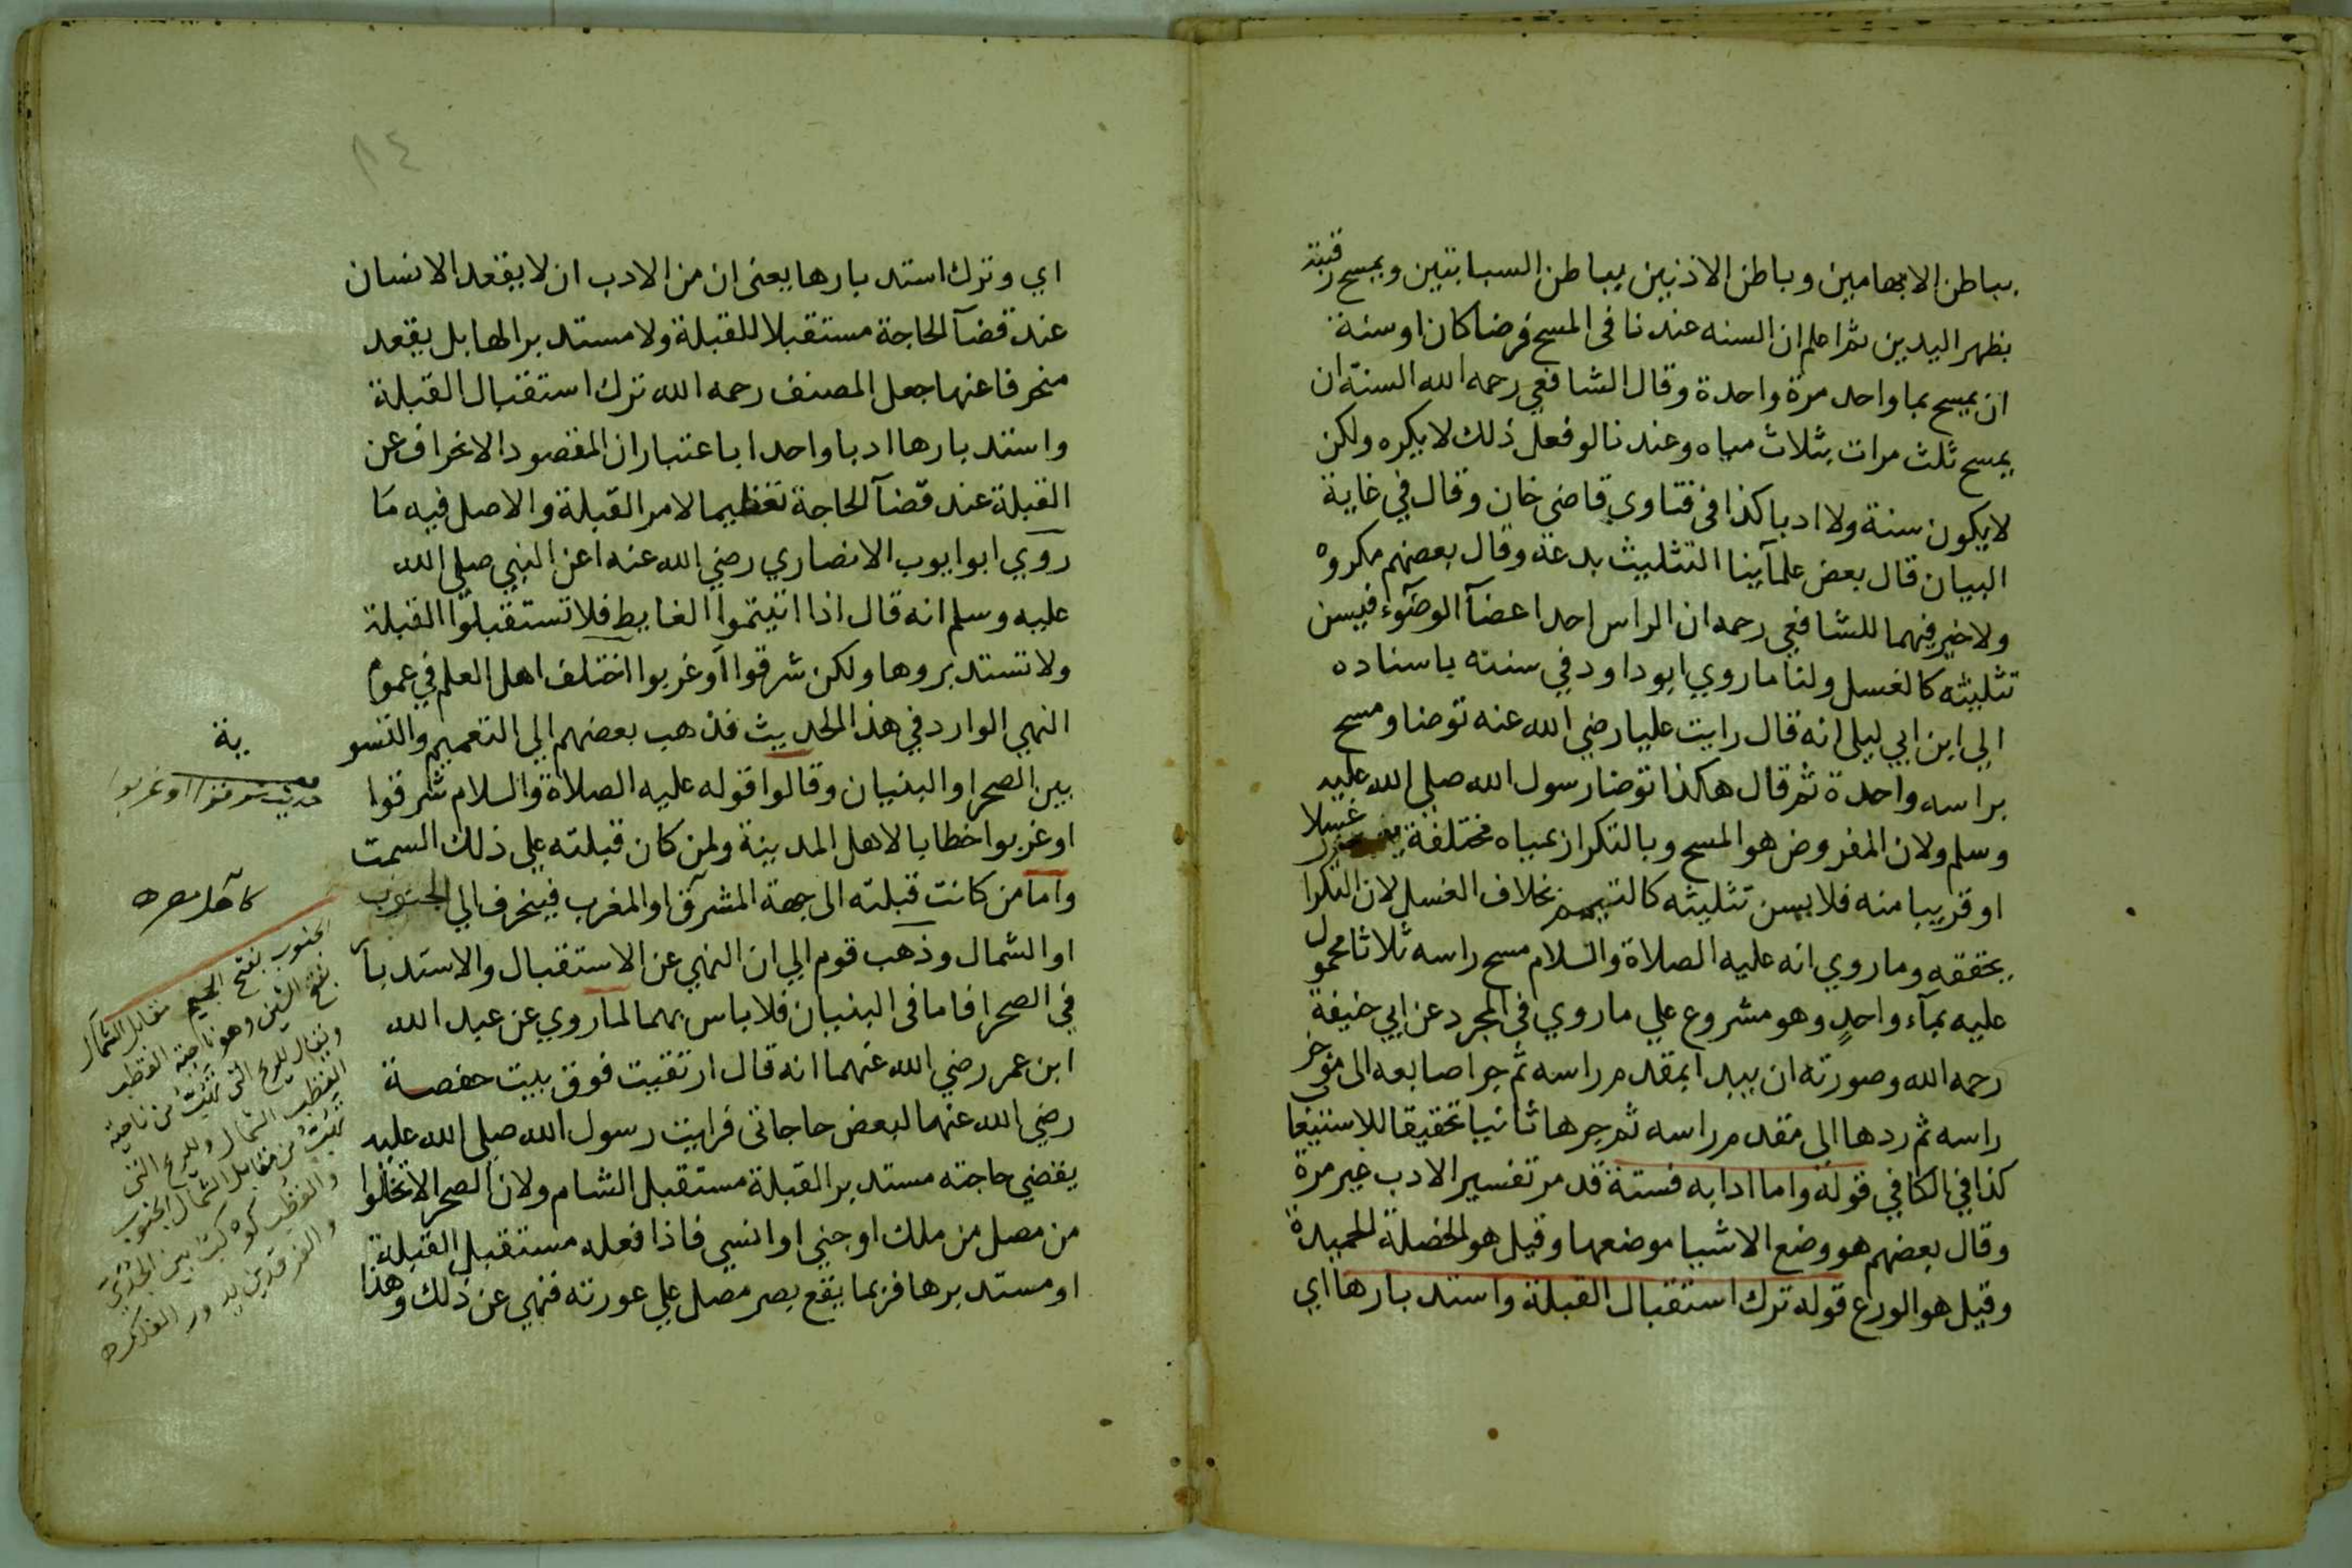 بباطن الابهامين وباطن الاذنين بباطن السبابتين ويمسح رقبته
بظهر اليدين ثم اعلم ان السنه عندنا فى المسح فرضا كان او سنة
ان يمسح بما واحد مرة واحدة وقال الشافعي رحمه الله السنة ان
يمسح ثلث مرات بثلاث مياه وعندنا لو فعل ذلك لا يكره ولكن
لا يكون سنة ولا ادبا كذا فى فتاوي قاضي خان وقال في غاية
البيان قال بعض علمآينا التثليث بدعة وقال بعضهم مكروه
ولا خير فيهما للشافعي رحمه ان الراس احد اعضآ الوضوء فيسن
تثليثه كالغسل ولنا ما روي ابو داود في سننه باسناده
الي ابن ابي ليلى انه قال رايت عليا رضي الله عنه توضا ومسح
براسه واحدة ثم قال هكذا توضا رسول الله صلي الله عليه
وسلم ولان المفروض هو المسح وبالتكرار بمياه مختلفة يصير غسلا
او قريبا منه فلا يسن تثليثه كالتيمم بخلاف الغسل لان التكرا
يحققه وما روي انه عليه الصلاة والسلام مسح راسه ثلاثا محمول
عليه بمآء واحدٍ وهو مشروع علي ما روي فى المجرد عن ابي حنيفة
رحمه الله وصورته ان يبدا بمقدم راسه ثم جر اصابعه الى موخر
راسه ثم ردها الى مقدم راسه ثم جرها ثانيا تحقيقا للاستيعا
كذا في الكافي قوله واما ادابه فستة قد مر تفسير الادب غير مرة
وقال بعضهم هو وضع الاشيا موضعها وقيل هو الخصلة الحميدة
وقيل هو الورع قوله ترك استقبال القبلة واستدبارها اي
٨٤
اي وترك استدبارها يعنى ان من الادب ان لا يقعد الانسان
عند قضآ الحاجة مستقبلا للقبلة ولا مستدبرا لها بل يقعد
منحرفا عنها جعل المصنف رحمه الله ترك استقبال القبلة
واستدبارها ادبا واحدا باعتبار ان المقصود الانحراف عن
القبلة عند قضآ الحاجة تعظيما لامر القبلة والاصل فيه ما
روي ابو ايوب الانصاري رضي الله عنه اعن النبي صلي الله
عليه وسلم انه قال اذا اتيتموا الغايط فلا تستقبلوا القبلة
ولا تستدبروها ولكن شرقوا او غربوا اختلف اهل العلم في عموم
النهي الوارد في هذا الحديث فذهب بعضهم الي التعميم والتسو
ية
بين الصحرا والبنيان وقالوا قوله عليه الصلاة والسلام شرقوا
او غربوا خطابا لاهل المدينة ولمن كان قبلته علي ذلك السمت
واما من كانت قبلته الى جهة المشرق او المغرب فينحرف الي الجنوب
او الشمال وذهب قوم الي ان النهي عن الاستقبال والاستدبار
في الصحرا فاما فى البنيان فلا باس بهما لما روي عن عبد الله
ابن عمر رضي الله عنهما انه قال ارتقيت فوق بيت حفصة
رضي الله عنهما لبعض حاجاتى فرايت رسول الله صلي الله عليه
يقضي حاجته مستدبر القبلة مستقبل الشام ولان الصحرا لا تخلوا
من مصل من ملك او جني او انسي فاذا فعله مستقبل القبلة
او مستدبرها فربما يقع بصر مصل علي عورته فنهي عن ذلك وهذا
حديث شرقوا او غربوا
الجنوب بفتح الجيم مقابل الشمال
بفتح الشين وهو ناحية القطب
ويقال للريح التى تهب من ناحية
القطب الشمال وللريح التى
تهب من مقابل الشمال الجنوب
والقطب كوكب بين الجدي
والفرقدين يدور